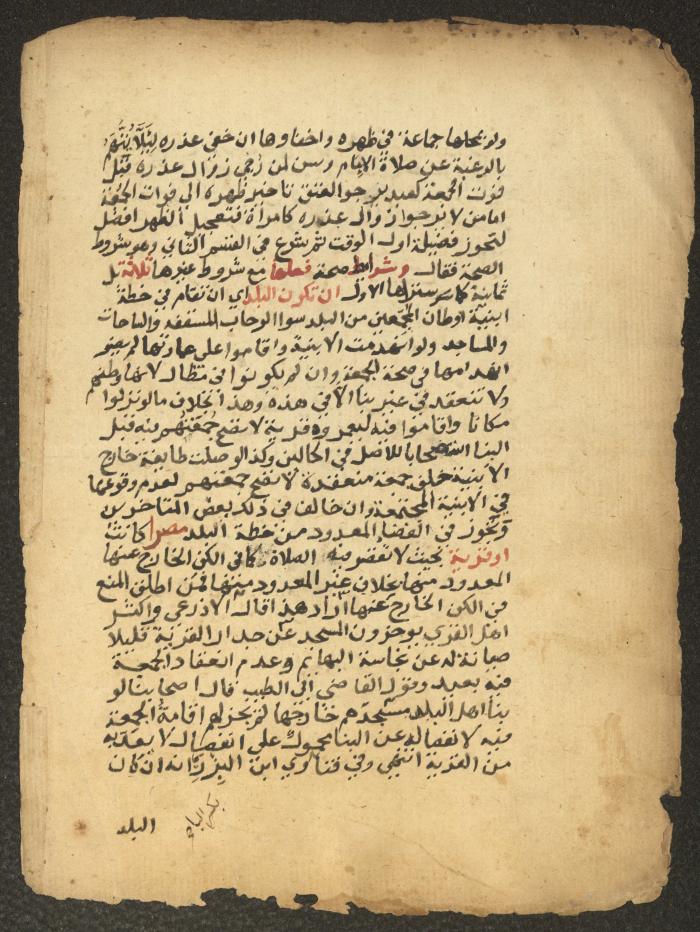 ولو بمحلها جماعة في ظهره واخفاوها ان خفي عذره لئلا يتهم
بالرغبة عن صلاة الامام وسن لمن رجي زوال عذره قبل
فوت الجمعة كعبد يرجوا العتق تاخير ظهره الي فوات الجمعة
اما من لا يرجوا زوال عذره كامراة فتعجيل الظهر افضل
لتحوز فضيلة اول الوقت ثم شرع في القسم الثاني وهو شروط
الصحة فقال وشرايط صحة فعلها مع شروط غيرها ثلاثة بل
ثمانية كما ستراها الاول ان تكون البلد اي ان تقام في خطة
ابنية اوطان المجمعين من البلد سوا الرحاب المسقفة والساحات
والمساجد ولو انهدمت الابنية واقاموا علي عمارتها لم يضر
انهدامها في صحة الجمعة وان لم يكونوا في مظال لانها وطنهم
ولا تنعقد في غير بنا الا في هذه وهذا بخلاف ما لو نزلوا
مكانا واقاموا فيه ليعمروه قرية لا تصح جمعتهم فيه قبل
البنا استصحابا للاصل في الحالين وكذا لو صلت طايفة خارج
الابنية خلف جمعة منعقدة لا تصح جمعتهم لعدم وقوعها
في الابنية المجتمعة وان خالف في ذلك بعض المتاخرين
وتجوز في الفضا المعدود من خطة البلد مصرا كانت
او قرية بحيث لا تقصر فيه الصلاة كما في الكن الخارج عنها
المعدود منها بخلاف غير المعدود منها فمن اطلق المنع
في الكن الخارج عنها اراد هذا قال الاذرعي واكثر
اهل القري يوخرون المسجد عن جدار القرية قليلا
صيانة له عن نجاسة البهايم وعدم انعقاد الجمعة
فيه بعيد وقول القاضي ابي الطيب قال اصحابنا لو
بنا اهل البلد مسجدهم خارجها لم يجز لهم اقامة الجمعة
فيه لانفصاله عن البنا محمول علي انفصال لا يعد به
من القرية انتهي وفي فتاوي ابن البزري انه ان كان
بكسر الباء
البلد